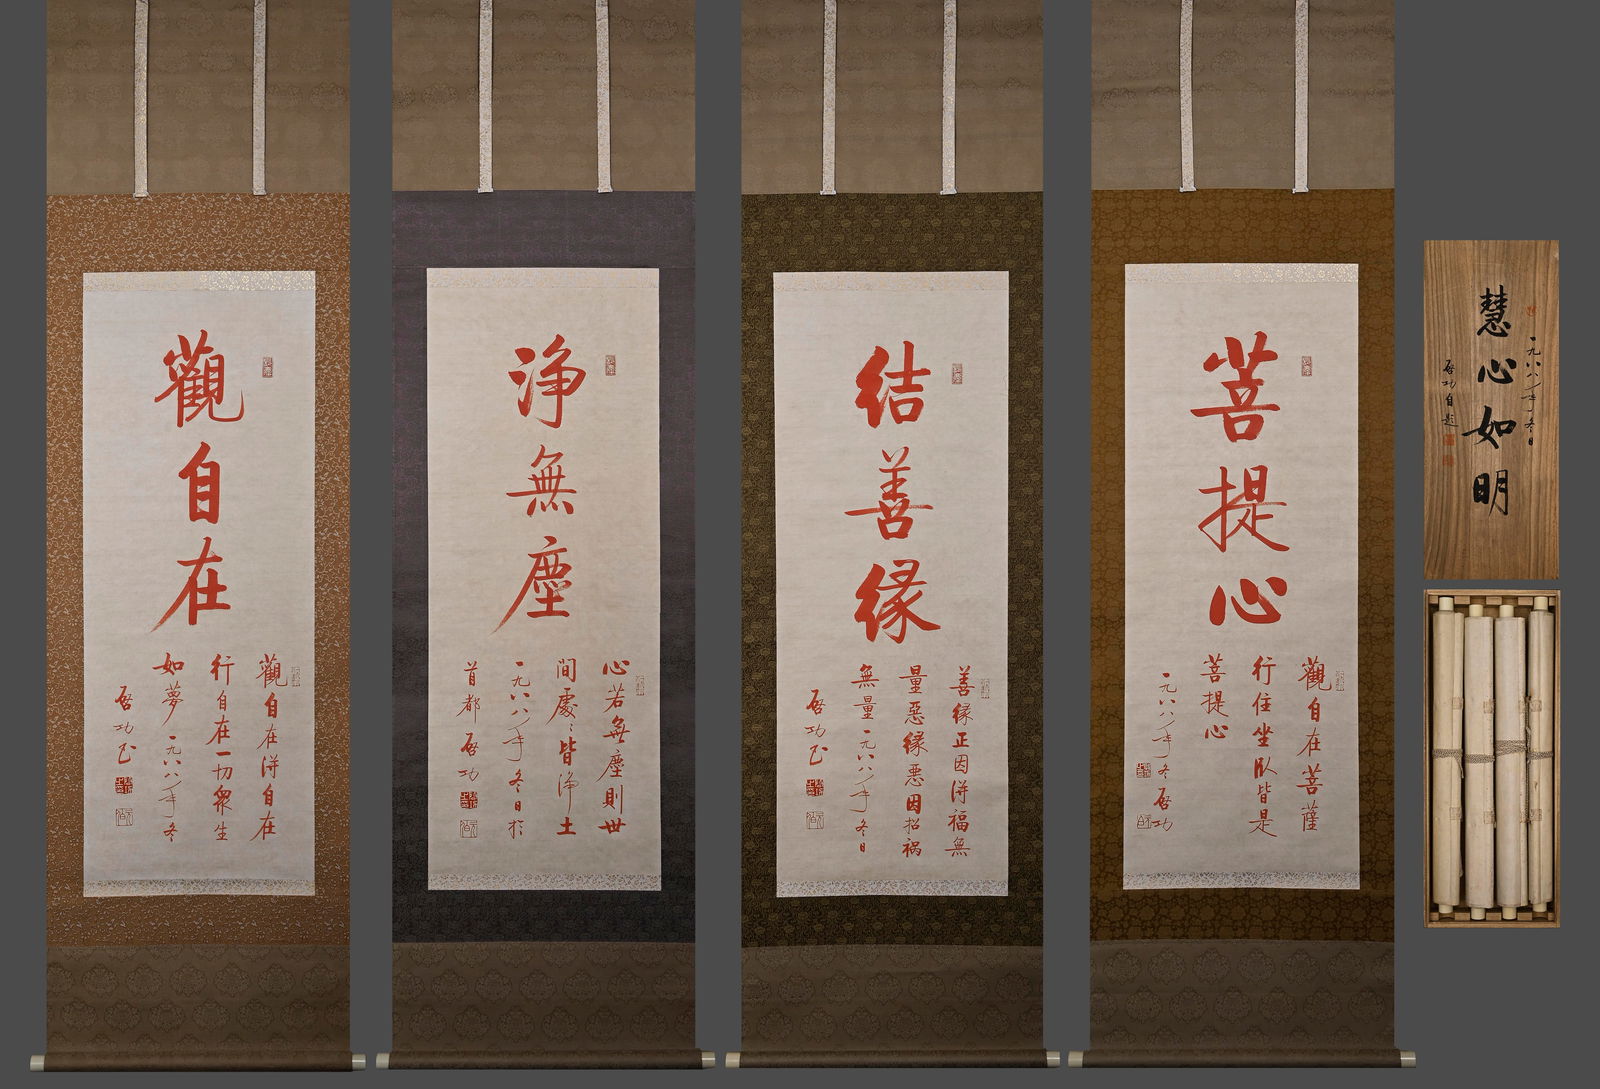 菩提心
觀自在菩薩
行住坐臥皆是
菩提心
一九八八年冬啓功
結善緣
善緣正因得福無
量惡緣惡因招禍
無量一九八八年冬日
啓功書
淨無塵
心若無塵則世
間處〻皆淨土
一九八八年冬日於
首都啓功
觀自在
觀自在得自在
行自在一切衆生
如夢一九八八年冬
啓功書
慧心如明
一九八八年冬日
啓功自題